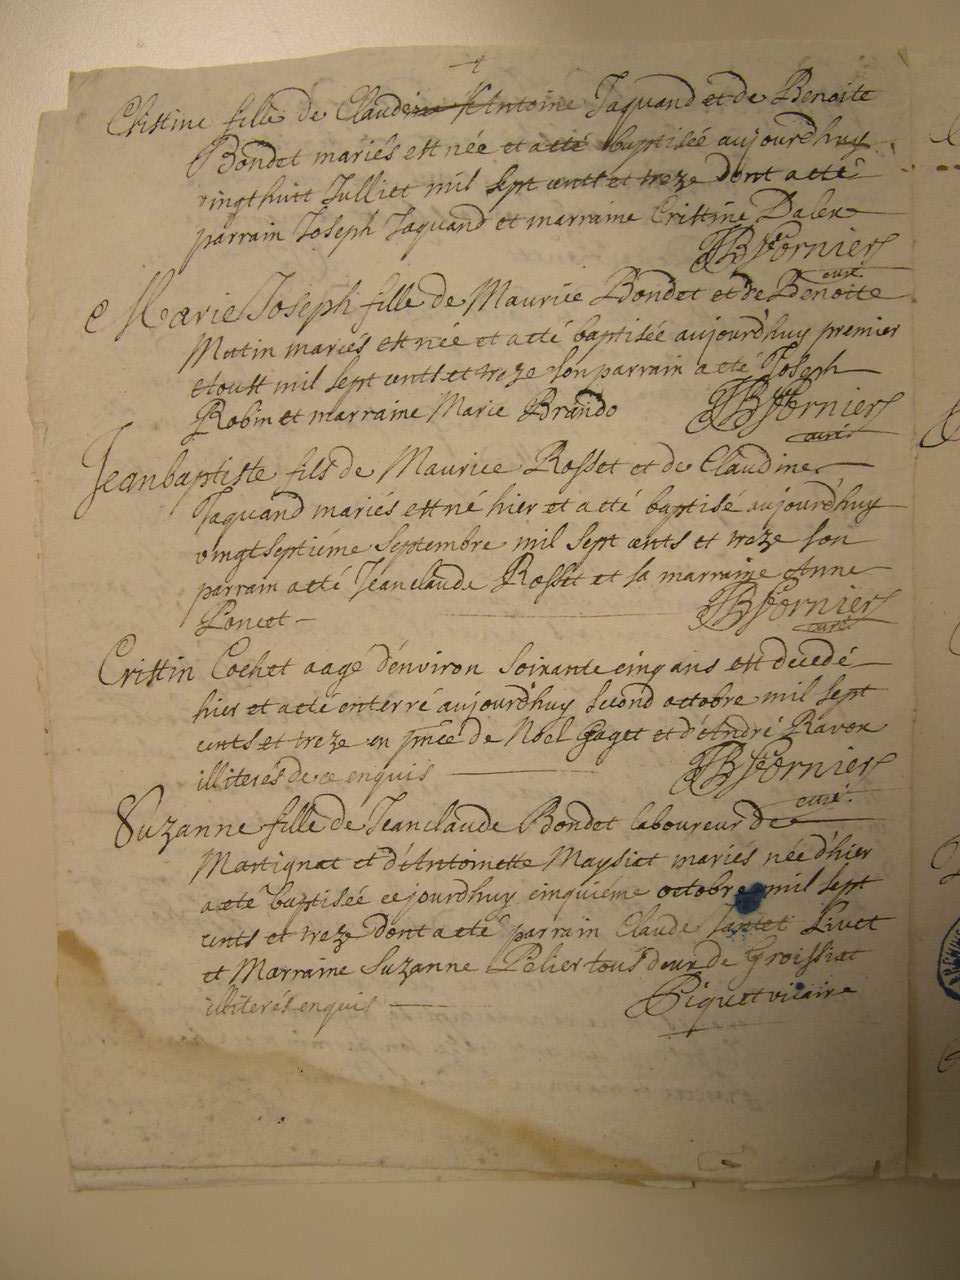 Cristine fille de Claude Antoine Jaquand et de Benoite
Bondet mariés est née et a eté baptisée aujourd'huy
vingt huit Julliet mil sept cents et treze dont a eté
parrain Joseph Jaquand et marraine Cristine Dalex
JB Fornier
curé
Marie Joseph fille de Maurice Bondet et de Benoite
Mutin mariés est née et a eté baptisée aujourd'huy premier
Aoust mil sept cents et treze son parrain a eté Joseph
Robin et marraine Marie Brando JB Fornier
curé
Jeanbaptiste fils de Maurice Rosset et de Claudine
Jaquand mariés est né hier et a eté baptisé aujourd'huy
vingt septiéme septembre mil sept cents et treze son
parrain a eté Jeanclaude Rosset et sa marraine Anne
Poncet JB Fornier
curé
Cristin Cochet aagé d'environ soixante cinq ans est decedé
hier et a eté enterré aujourd'huy second octobre mil sept
cents et treze en pnce de Noel Gaget et d'André Ravex
illiterés de ce enquis JB Fornier
curé
Suzanne fille de Jeanclaude Bondet laboureur de
Martignat et d'Antoinette Maysiat mariés née d'hier
a eté baptisée ce jourd'huy cinquiéme octobre mil sept
cents et treze dont a eté parrain Claude Livet
et Marraine Suzanne Pelier tous deux de Groissiat
illiterés enquis Piquet vicaire